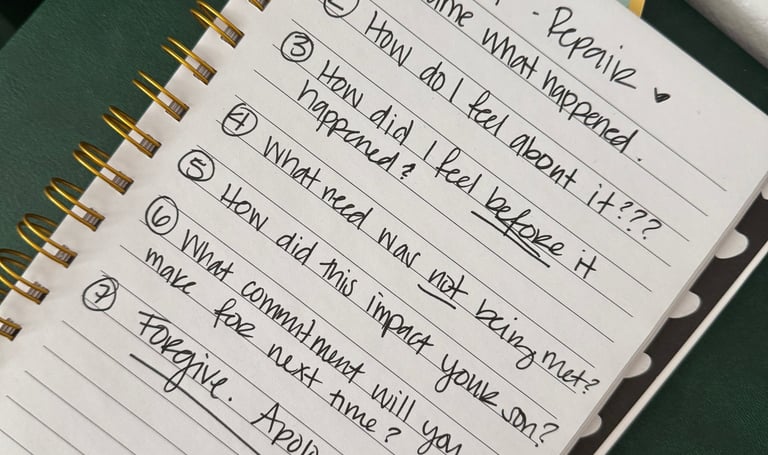 - Repair ♥
what happened.
② How do I feel about it???
③ How did I feel before it
happened?
④ What need was not being met?
⑤ How did this impact your son?
⑥ What commitment will you
make for next time?
⑦ Forgive.